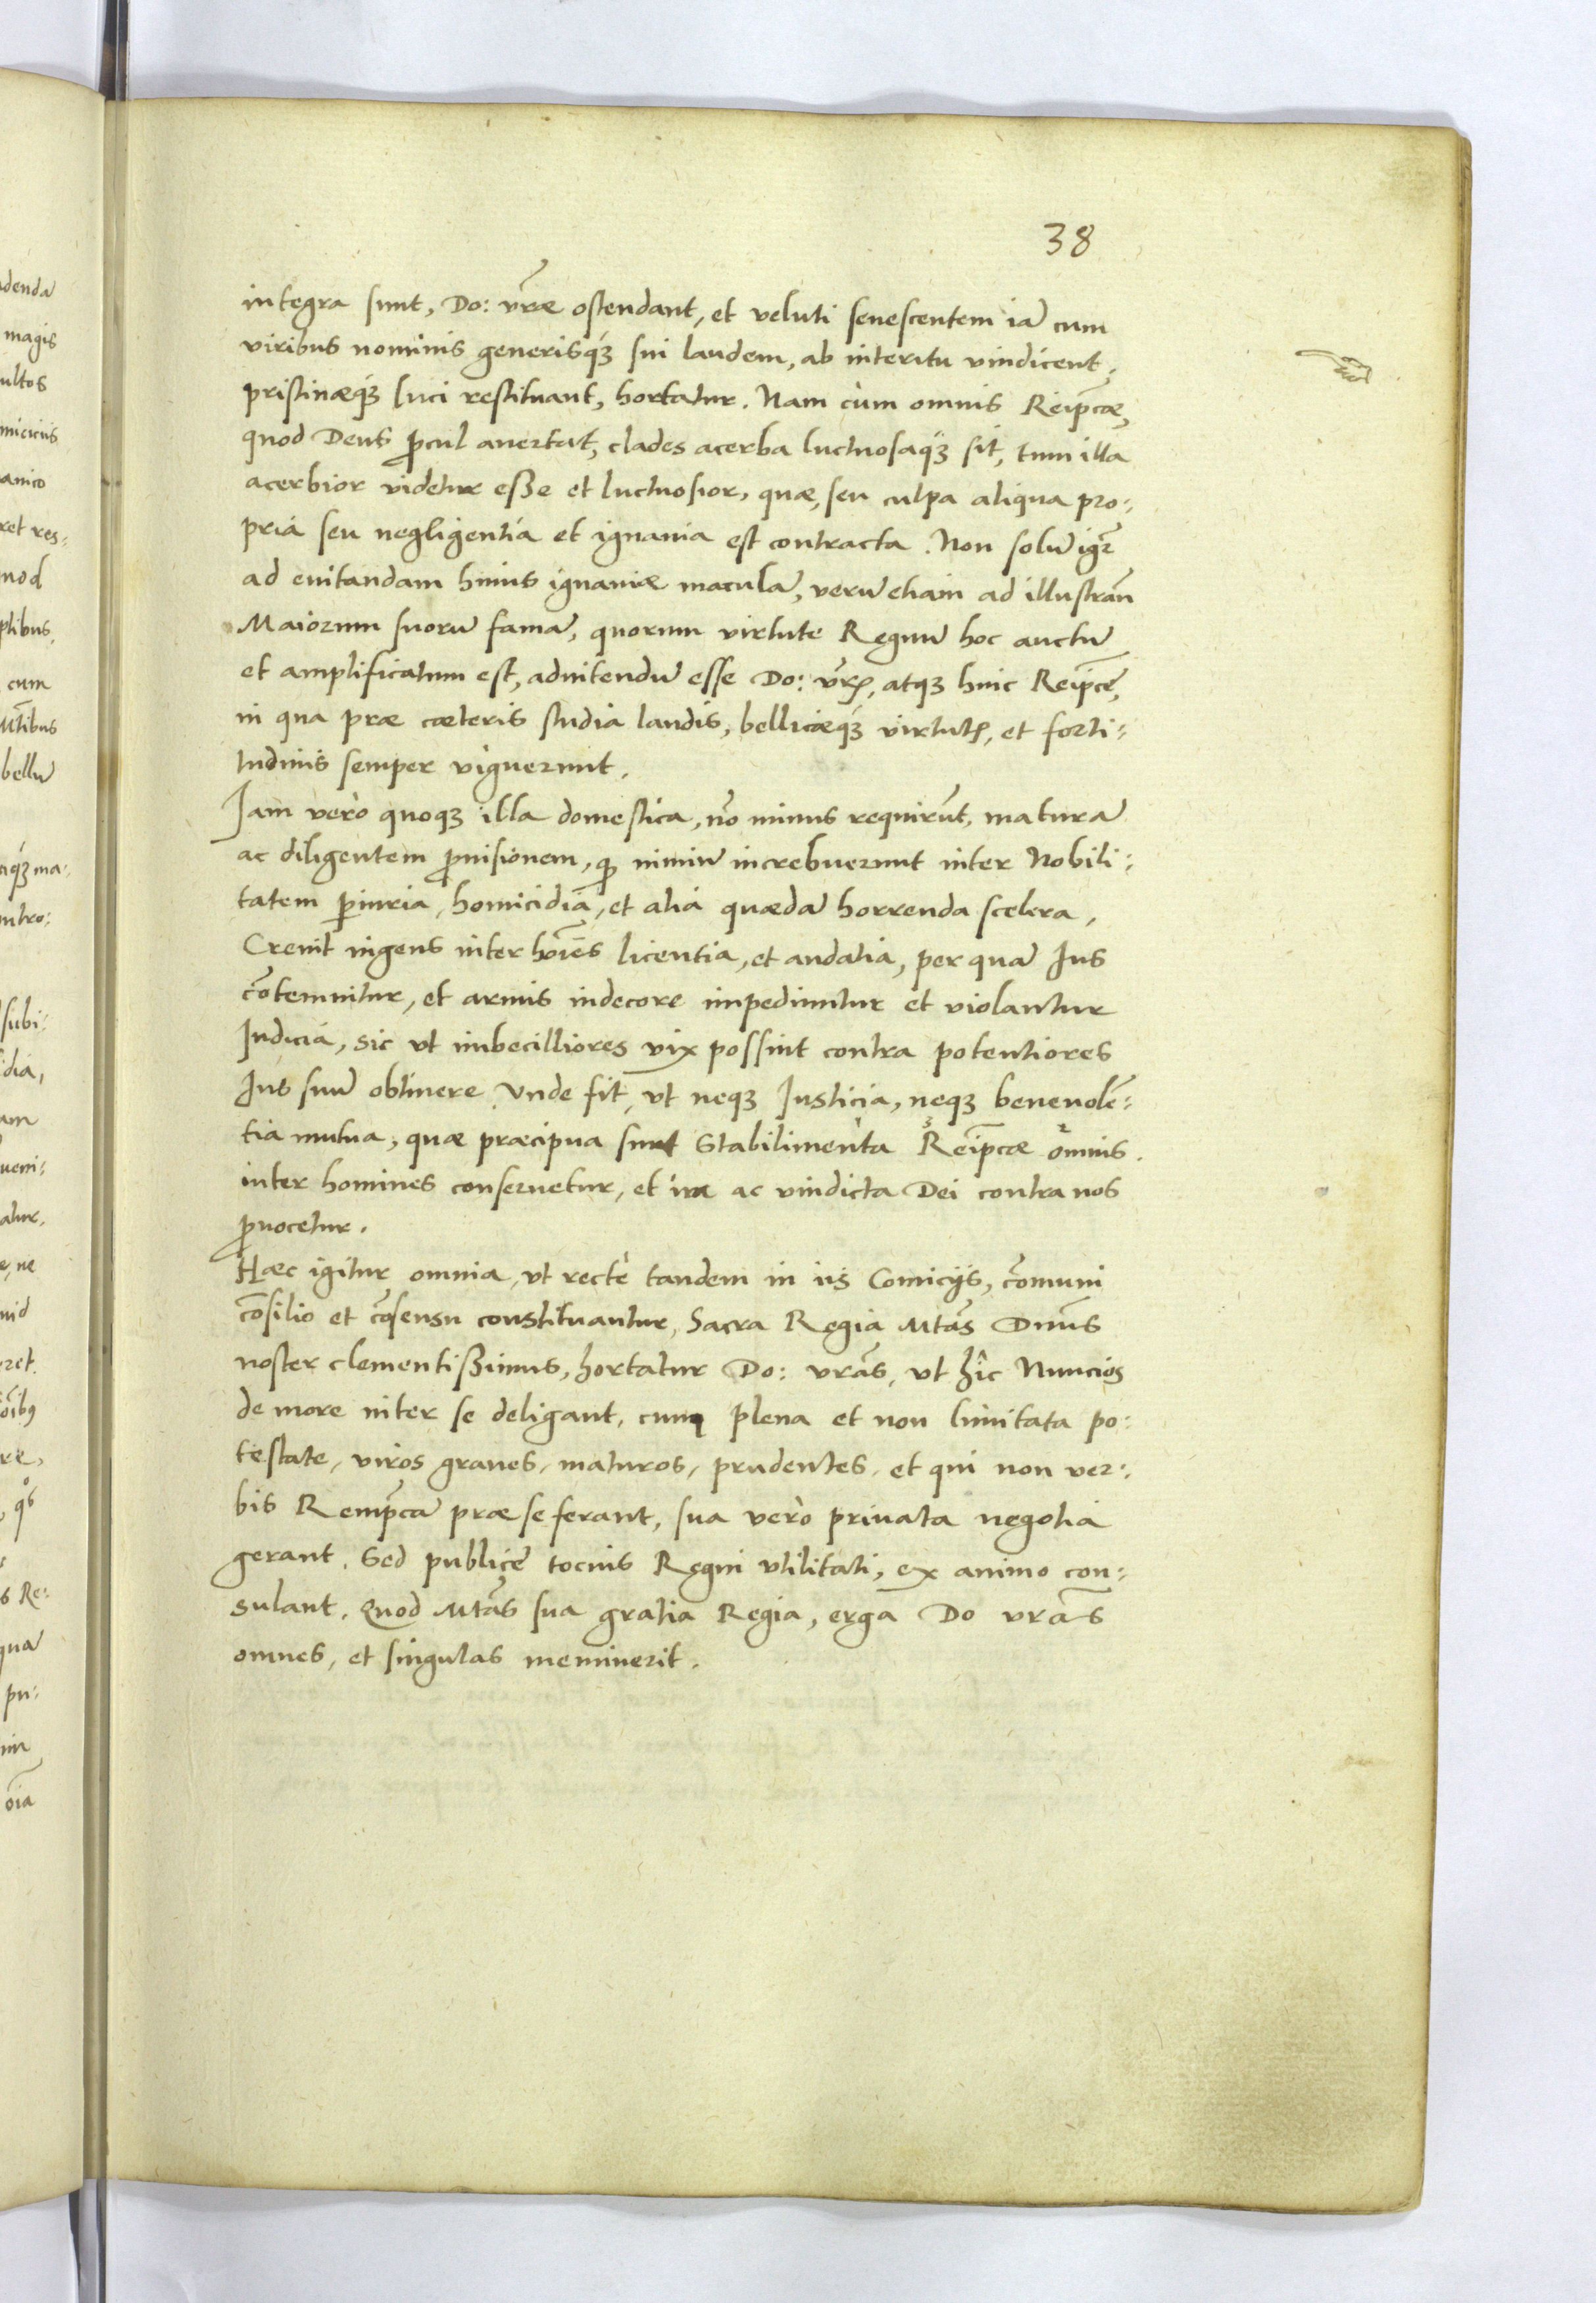 38
integra sunt, Do: vr̃æ ostendant, et veluti senescentem iã cum
viribus nominis generisqꝫ sui laudem, ab interitu vindicent,
pristinæqꝫ luci restituant, hortatur. Nam cùm omnis Reip̃cæ,
quod Deus ꝓcul auertat, clades acerba luctuosaqꝫ sit, tum illa
acerbior videtur eße et luctuosior, quæ, seu culpa aliqua pro:
pria seu negligentia et ignauia est contracta. Non solũ igr̃
ad euitandam huius ignauiæ maculã, verũ etiam ad illustrañ
Maiorum suorũ famã, quorum virtute Regnũ hoc auctũ
et amplificatum est, adnitendũ esse Do: vr̃ꝭ, atqꝫ huic Reip̃ce,
in qua præ cæteris studia laudis, bellicæqꝫ virtutꝭ, et forti:
tudinis semper viguerunt.
Iam verò quoqꝫ illa domestica, nõ minus requirũt, maturã
ac diligentem ꝓuisionem, ꝙ nimiũ increbuerunt inter Nobili:
tatem ꝑiuria, homicidia, et alia quædã horrenda scelera,
Creuit ingens inter hoĩes licentia, et audatia, per quã Ius
cõtemnitur, et armis indecore impediuntur et violantur
Iudicia, sic vt imbecilliores vix possint contra potentiores
Ius suũ obtinere. Vnde fit, vt neqꝫ Iusticia, neqꝫ beneuolẽ:
tia mutua, quæ præcipua sunt Stabilimenta Reip̃cæ omnis.
inter homines conseruetur, et ira ac vindicta Dei contra nos
ꝓuocetur.
Hæc igitur omnia, vt rectè tandem in ijs Comicijs, cõmuni
cõsilio et cõsensu constituantur, Sacra Regia Mtãs Dnũs
noster clementißimus, hortatur Do: vrãs, vt hîc Nuncios
de more inter se deligant, cum plena et non limitata po:
testate, viros graues, maturos, prudentes, et qui non ver:
bis Remp̃cã præ se ferant, sua verò priuata negotia
gerant. Sed publicę tocius Regni vtilitati, ex animo con:
sulant. Quod Mtãs sua gratia Regia, erga Do vrãs
omnes, et singulas meminerit.